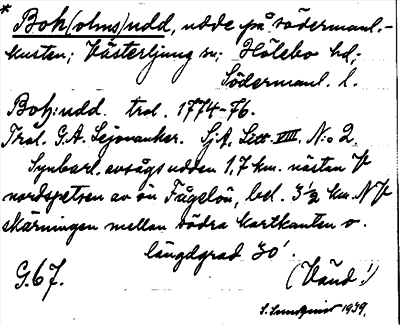 * Boh(olms)udd, udde på södermanl.-
kusten; Västerljung sn; Hölebo hd;
Södermanl. l.
Boh:udd. trol. 1774-76.
Träl. G.A. Lejonanker. SjA, Litt. VIII. N:o 2.
Synbarl. avsågs udden 1,7 km. nästan V
nordspetsen av ön Fågelön, bel. 3 1/2 km. NV
skärningen mellan södra kartkanten o.
längdgrad 30'.
G. 67. (Vänd!)
1939.